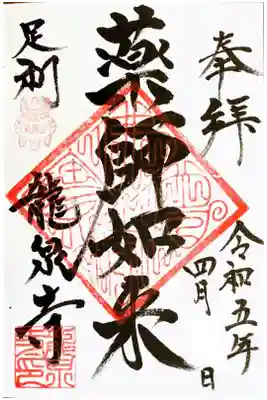 奉拝
令和五年
四月 日
薬師如来
足利
龍泉寺